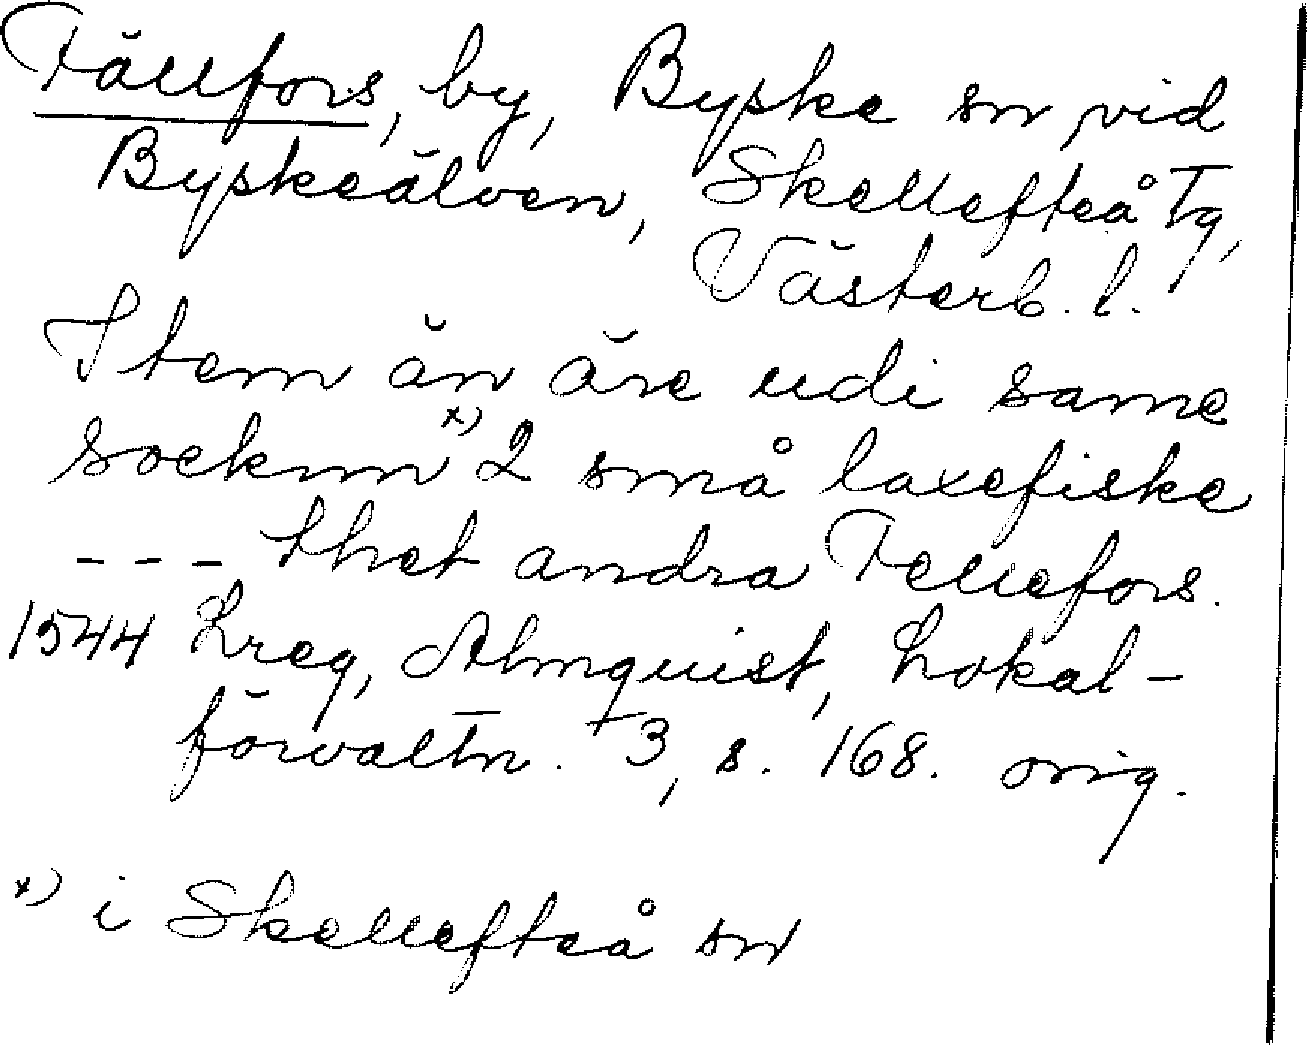 Fällfors, by, Byske sn vid
Byskeälven, Skellefteå Tg,
Västerb. l.
Item än äre udi same
soeknn x) 2 små laxefiske
--- thet andra Fellefors.
1544 Lreg, Almquist, Lokal-
förvaltn. 3, s. 168. orig.
x) i Skellefteå sn